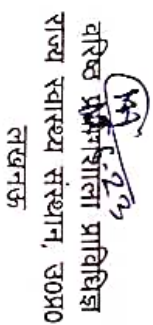 वरिष्ठ प्रयोगशाला प्राविधिज्ञ
राज्य स्वास्थ्य संस्थान, उ०प्र०
लखनऊ